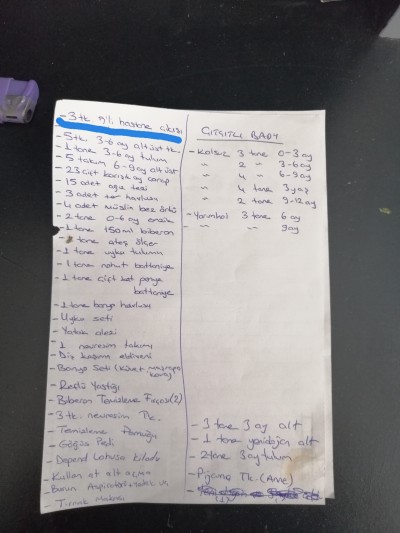 -3 tk 5'li hastane çıkışı
-5 tk. 3-6 ay alt üst tk.
-1 tane 3-6 ay tulum
-5 takım 6-9 ay alt üst
-23 çift karışık ay çorap
-15 adet ağız bezi
-3 adet ter havlusu
-4 adet müslin bez örtü
-2 tane 0-6 ay emzik
-1 tane 150 ml biberon
tane ateş ölçer
-1 tane uyku tulumu
-1 tane nohut battaniye
-1 tane çift kat penye
battaniye
-1 tane banyo havlusu
-Uyku seti
-Yatak alezi
-1 nevresim takımı
-Diş kaşıma eldiveni
-Banyo Seti (Küvet
-Reflü Yastığı
-Biberon Temizleme Fırçası(2)
-3 tk. nevresim Tk.
-Temizleme Pamuğu
-Göğüs Pedi
-Depend Lohusa Külodu
-Kullan at alt açma
-Burun Aspiratörü
-Tırnak Makası
ÇITÇITLI BADY
-Kolsuz 3 tane 0-3 ay
" 2 " 3-6 ay
" 4 " 6-9 ay
" 4 tane 3 yaz
" 2 tane 9-12 ay
-Yarımkol 3 tane 6 ay
- " " 9 ay
-3 tane 3 ay alt
-1 tane yenidoğan alt
-2 tane 3 ay tulum
-Pijama Tk. (Anne)